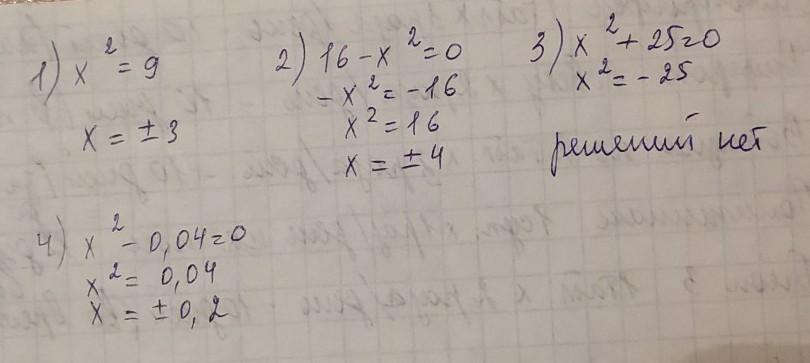 1) x² = 9
x = ± 3
2) 16 - x² = 0
- x² = - 16
x² = 16
x = ± 4
3) x² + 25 = 0
x² = - 25
решений нет
4) x² - 0,04 = 0
x² = 0,04
x = ± 0,2